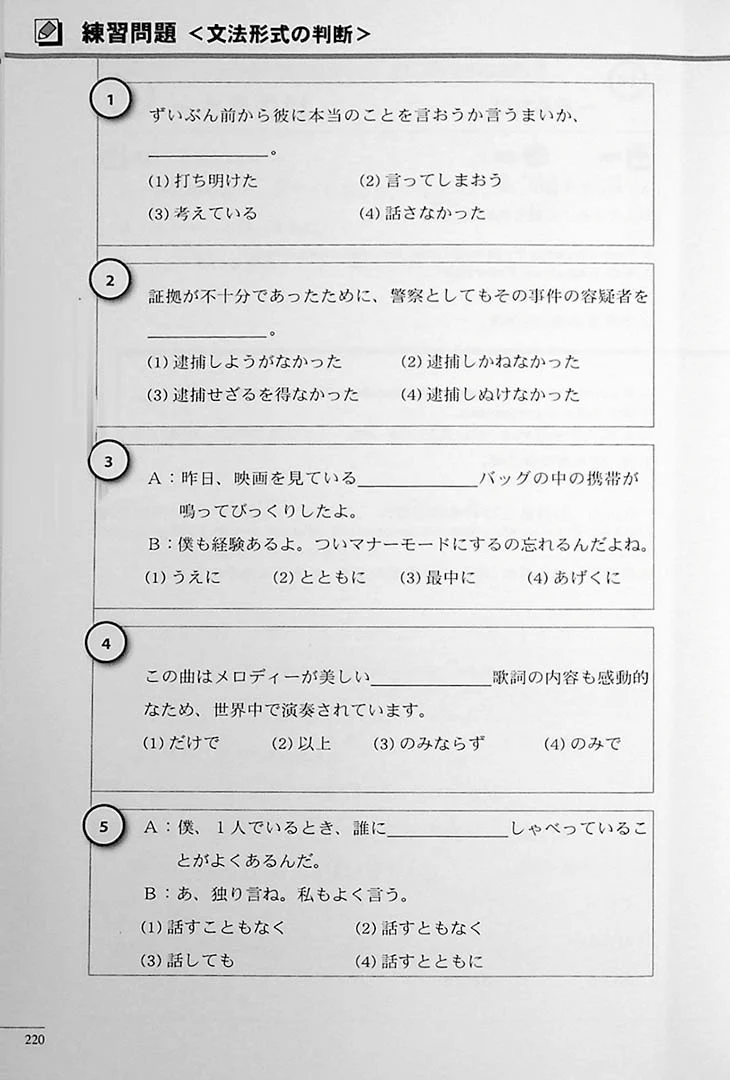 練習問題 <文法形式の判断>
1
ずいぶん前から彼に本当のことを言おうか言うまいか、
____________。
(1) 打ち明けた (2) 言ってしまおう
(3) 考えている (4) 話さなかった
2
証拠が不十分であったために、警察としてもその事件の容疑者を
____________。
(1) 逮捕しようがなかった (2) 逮捕しかねなかった
(3) 逮捕せざるを得なかった (4) 逮捕しぬけなかった
3
A：昨日、映画を見ている____________バッグの中の携帯が
鳴ってびっくりしたよ。
B：僕も経験あるよ。ついマナーモードにするの忘れるんだよね。
(1) うえに (2) とともに (3) 最中に (4) あげくに
4
この曲はメロディーが美しい____________歌詞の内容も感動的
なため、世界中で演奏されています。
(1) だけで (2) 以上 (3) のみならず (4) のみで
5
A：僕、1人でいるとき、誰に____________しゃべっているこ
とがよくあるんだ。
B：あ、独り言ね。私もよく言う。
(1) 話すこともなく (2) 話すともなく
(3) 話しても (4) 話すとともに
220